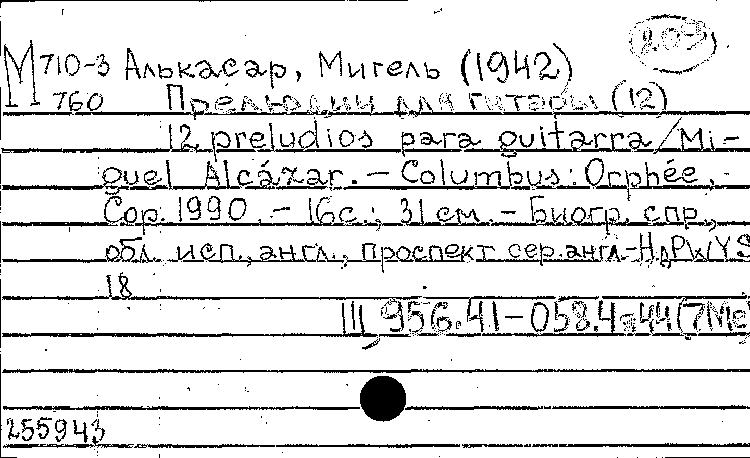 203
М 710-3 Алькасар, Мигель (1942)
760 Прелюдии для гитары (12)
12 preludios para guitarra/Mi-
guel Alcázar. – Columbus: Orphée,
Cop. 1990. – 16с.; 31см. – Биогр. спр.,
обл. исп., англ., проспект сер. англ.
18
956.41-058.4
255943